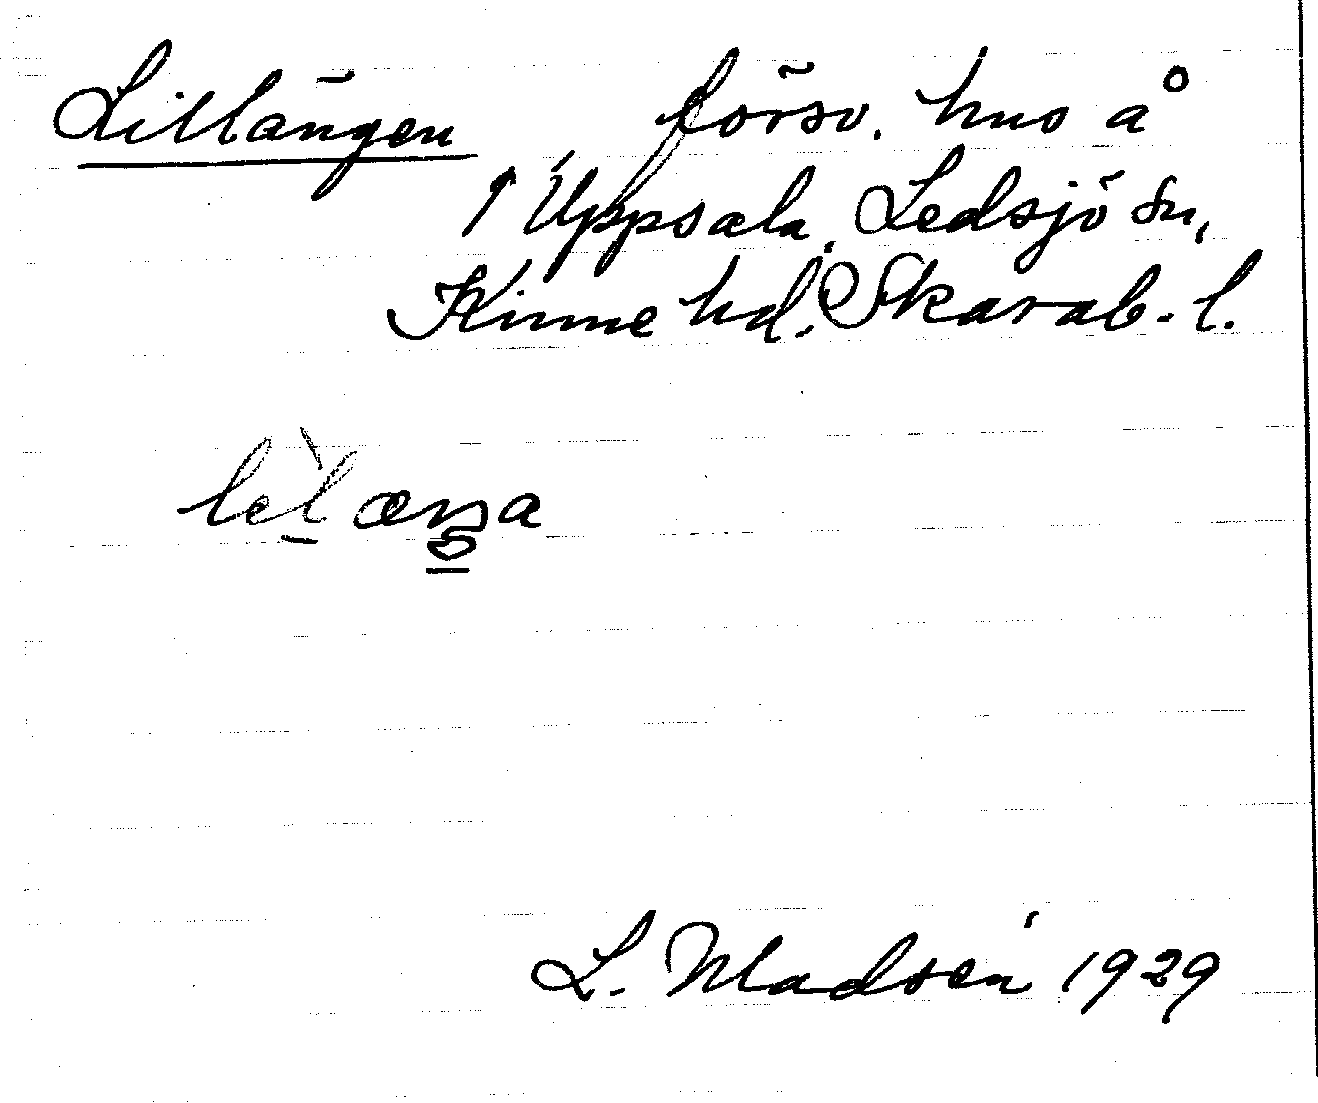 Lillängen försv. hus å
1 Uppsala, Ledsjö sn,
Kinne hd, Skarab. l.
L. Madsén 1929